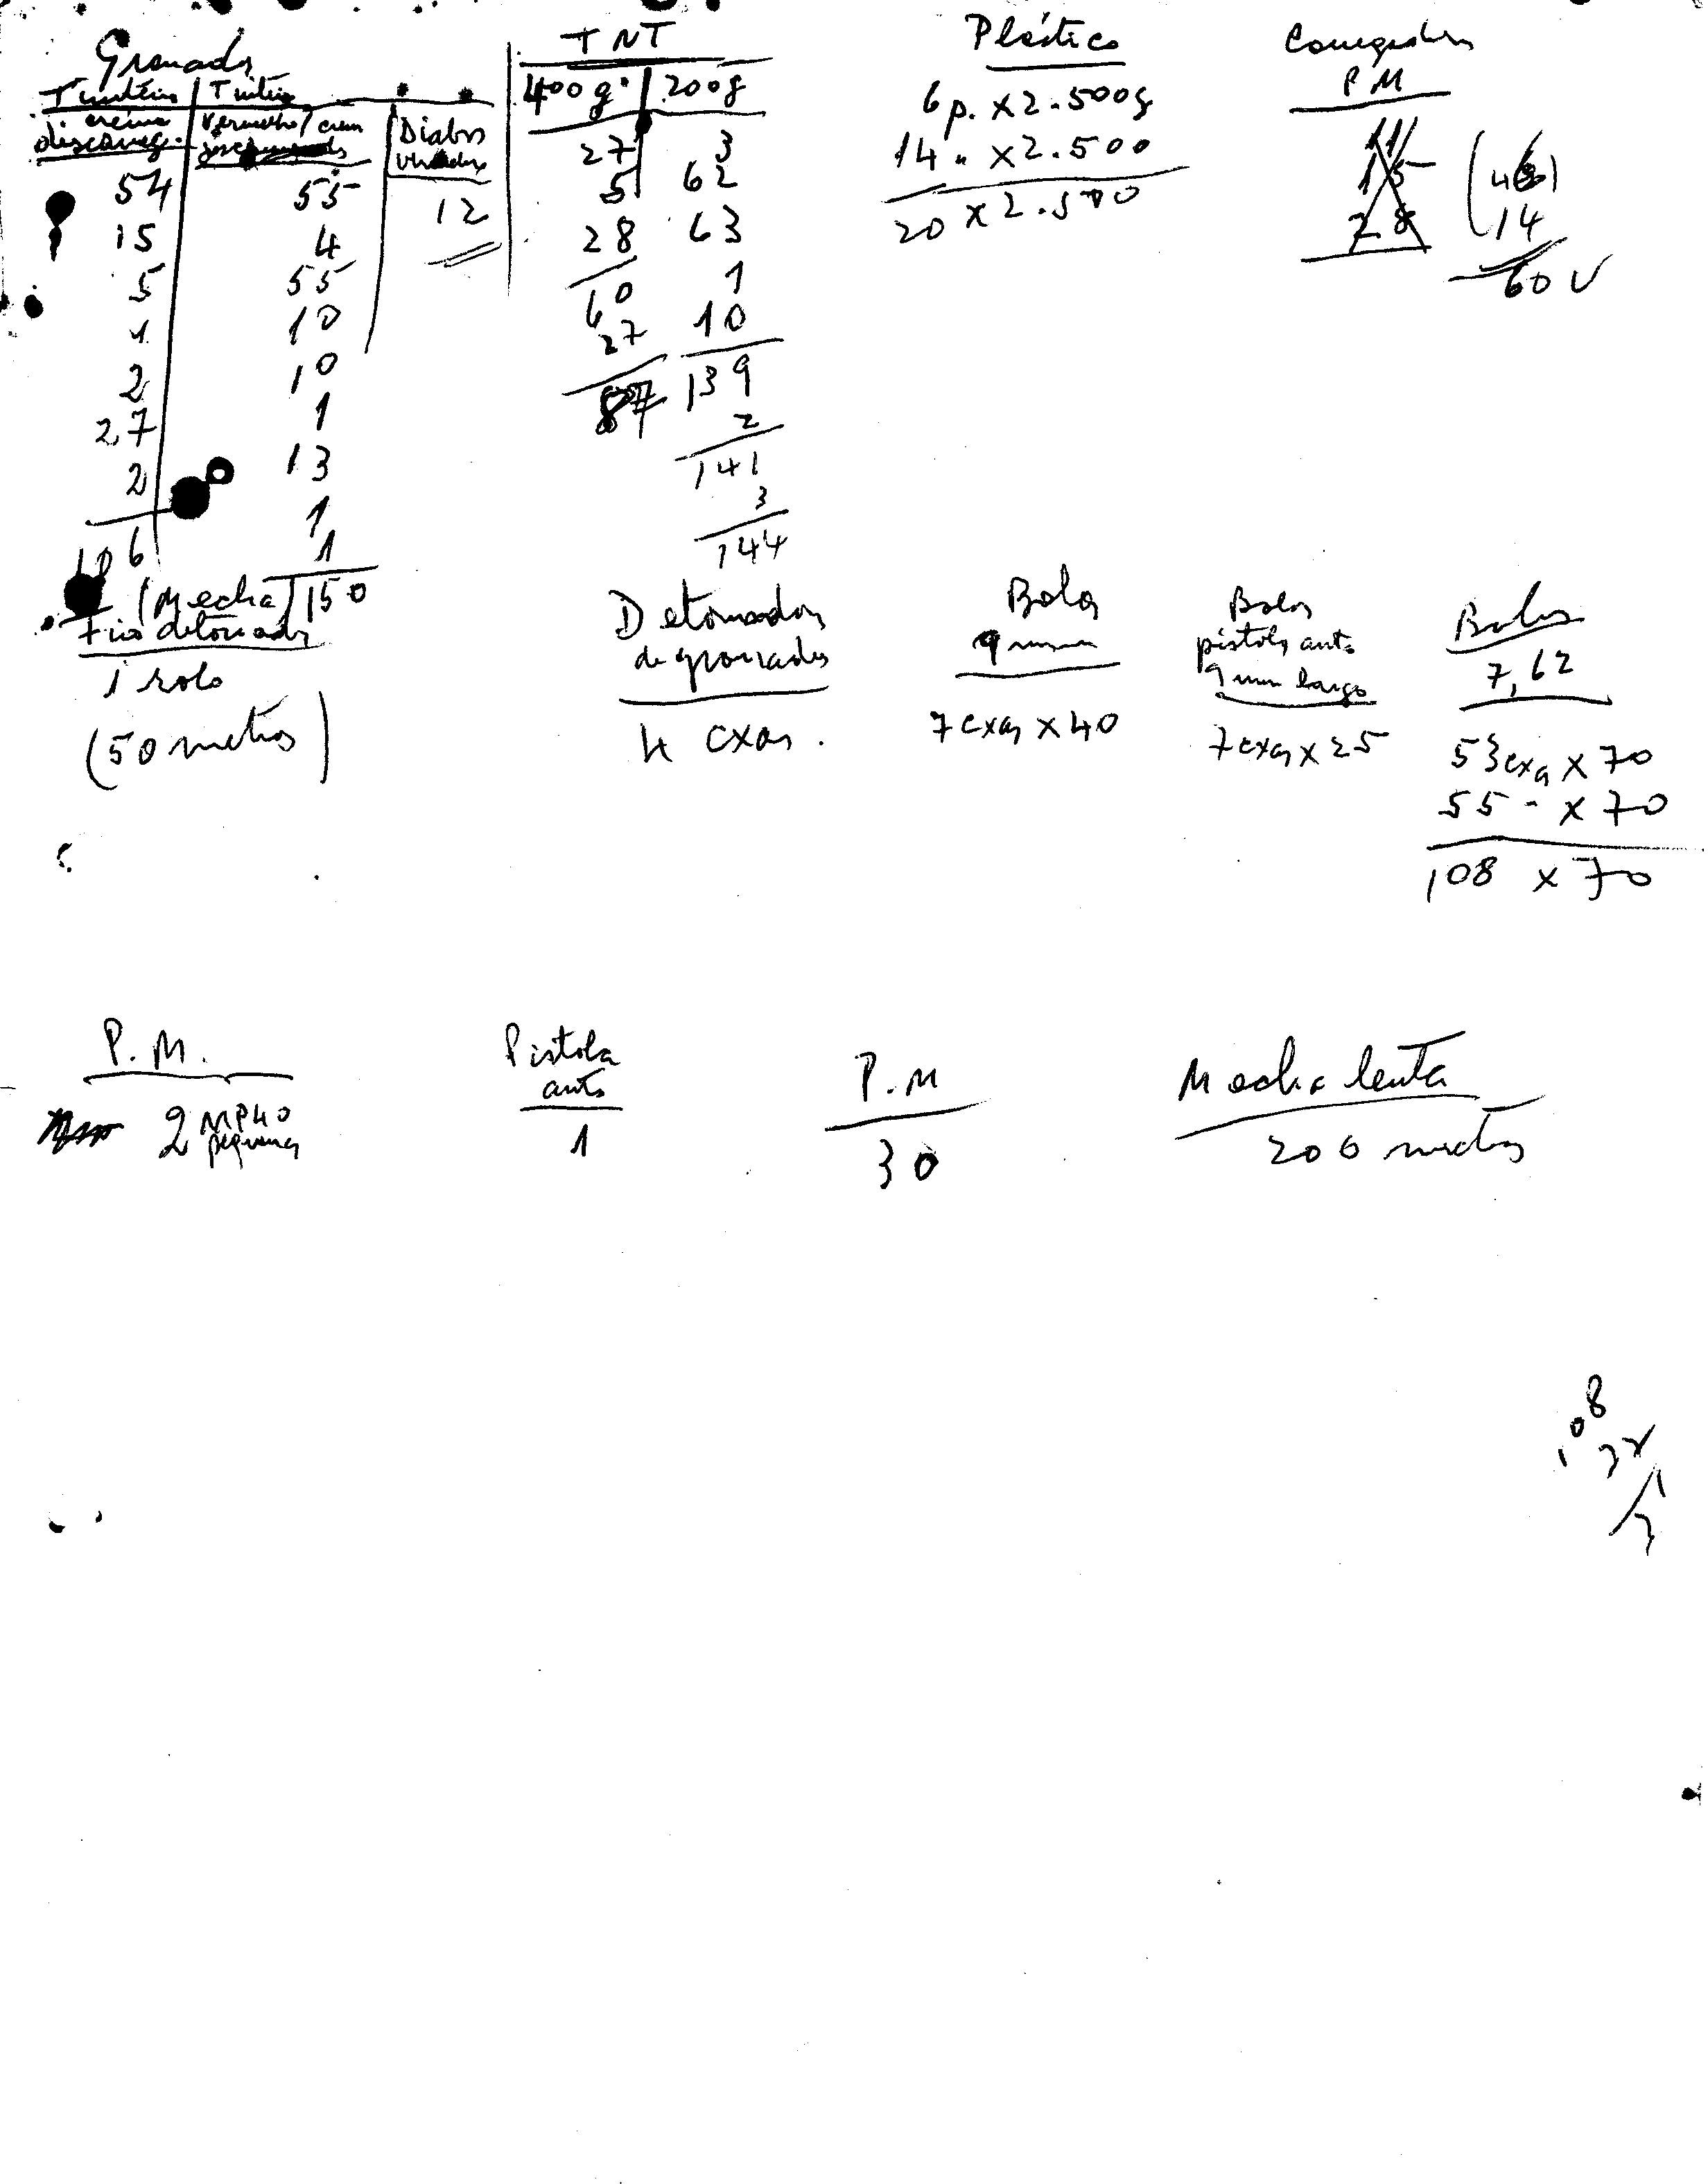 Granadas
Tinteiro | Tinteiro
creme | vermelho/creme | Diabos
descarreg. | verdes
54 55 12
15 4
5 55
1 10
2 10
27 1
2 13
1
106 1
150
TNT
400g. | 200g
27 3
5 62
28 63
60 1
27 10
87 139
2
141
3
144
Plástico
6 p. x 2.500g
14 " x 2.500
20 x 2.500
Carregadores
P M
11
15
28
(46)
14
60 V
(Mecha)
Fio detonador
1 rolo
(50 metros)
Detonadores
de granadas
4 cxas.
Balas
9 mm
7 cxas x 40
Balas
pistola auto
9 mm largo
7 cxas x 25
Balas
7,62
53 cxas x 70
55 " x 70
108 x 70
P.M.
2 MP40
pequenas
Pistola
auto
1
P.M
30
Mecha lenta
200 metros
108